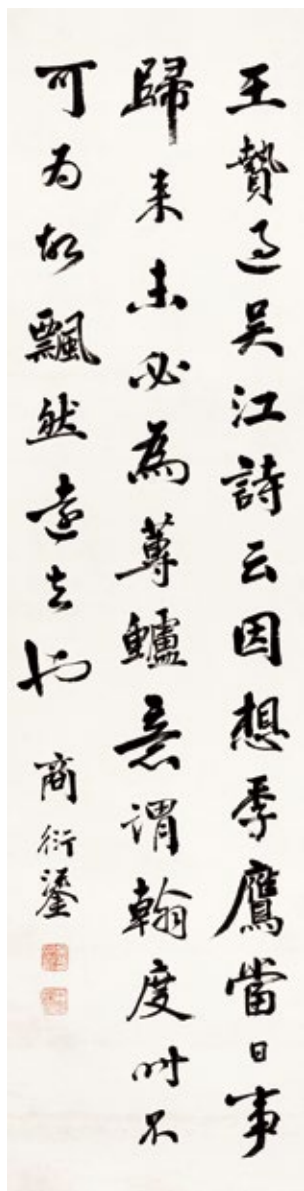 王贄過吳江詩云因想季鷹當日事
歸来未必為蓴鱸意謂翰度時不
可为故飄然遠去也
商衍鎏